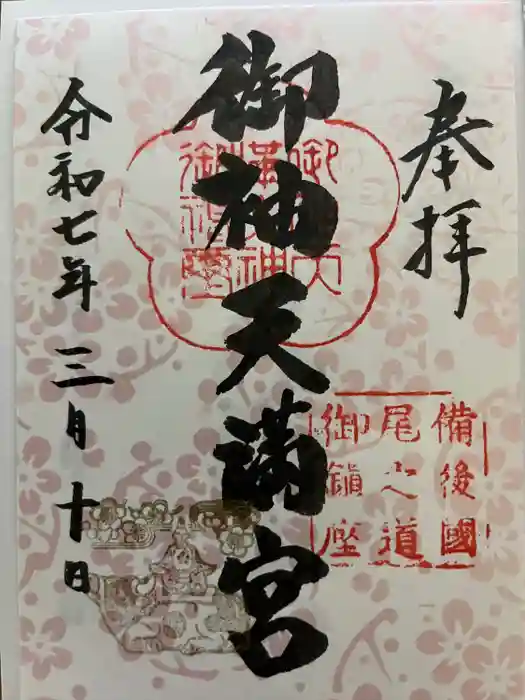 奉拝
備後國
尾之道
御鎮座
御袖天満宮
令和七年 三月 十日